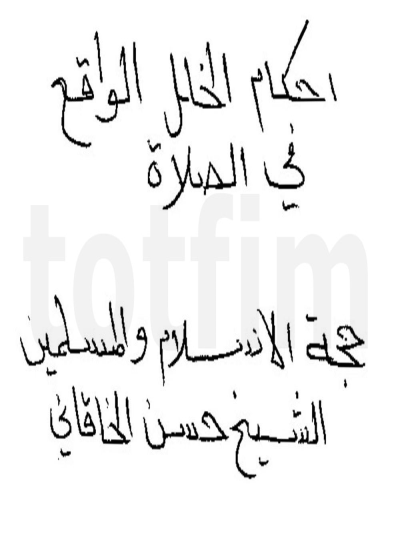 احكام الخلل الواقع
في الصلاة
totfim
حجة الاسلام والمسلمين
الشيخ حسن الخاقاني